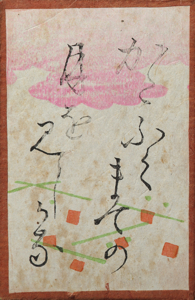 かたふくまての
月を見しかな